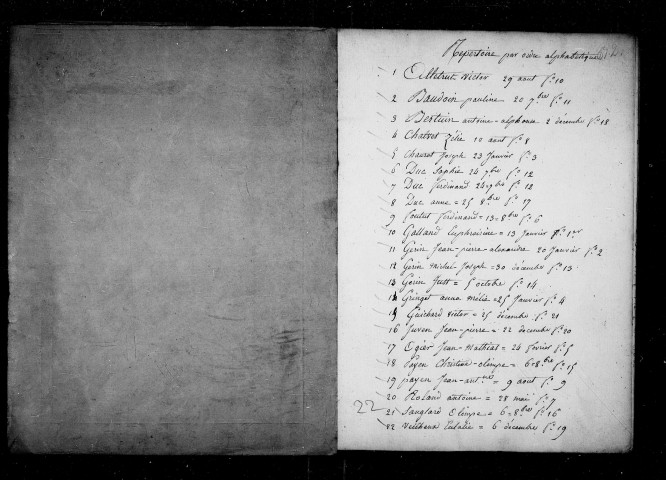 Repertoire par ordre alphabetique
1 Victor 29 aout f.o 10
2 Baudoin pauline 20 7.bre f.o 11
3 Bertuin antoine-alphonse 2 décembre f.o 18
4 Chatrot Zélie 10 aout f.o 8
5 Chauvet Joseph 23 Janvier f.o 3
6 Duc Sophie 24 7bre f.o 12
7 Duc Ferdinand 24 7bre f.o 12
8 Duc anne = 25 8.bre f.o 17
9 Ferdinand = 13 = 8bre f.o 6
10 Galland Euphroisine = 13 Janvier f.o 1er
11 Gérin Jean-pierre-alexandre 20 Janvier f.o 2
12 Gérin Michel-Joseph = 30 décembre f.o 13
13 Gérin Just = 5 octobre f.o 14
14 Gringet anna mélie = 25 Janvier f.o 4
15 Guichard victor = 25 décembre f.o 21
16 Juven Jean-pierre = 22 decembre f.o 20
17 Ogier Jean-Mathias = 24 fevrier f.o 5
18 Payen Christine-olimpe = 6 = 8.bre f.o 15
19 payen Jean-ant.ne = 9 aout f.o 9
20 Roland antoine = 28 mai f.o 7
21 Sanglard Olimpe = 6 = 8bre f.o 16
22
22 Eulalie = 6 décembre f.o 19